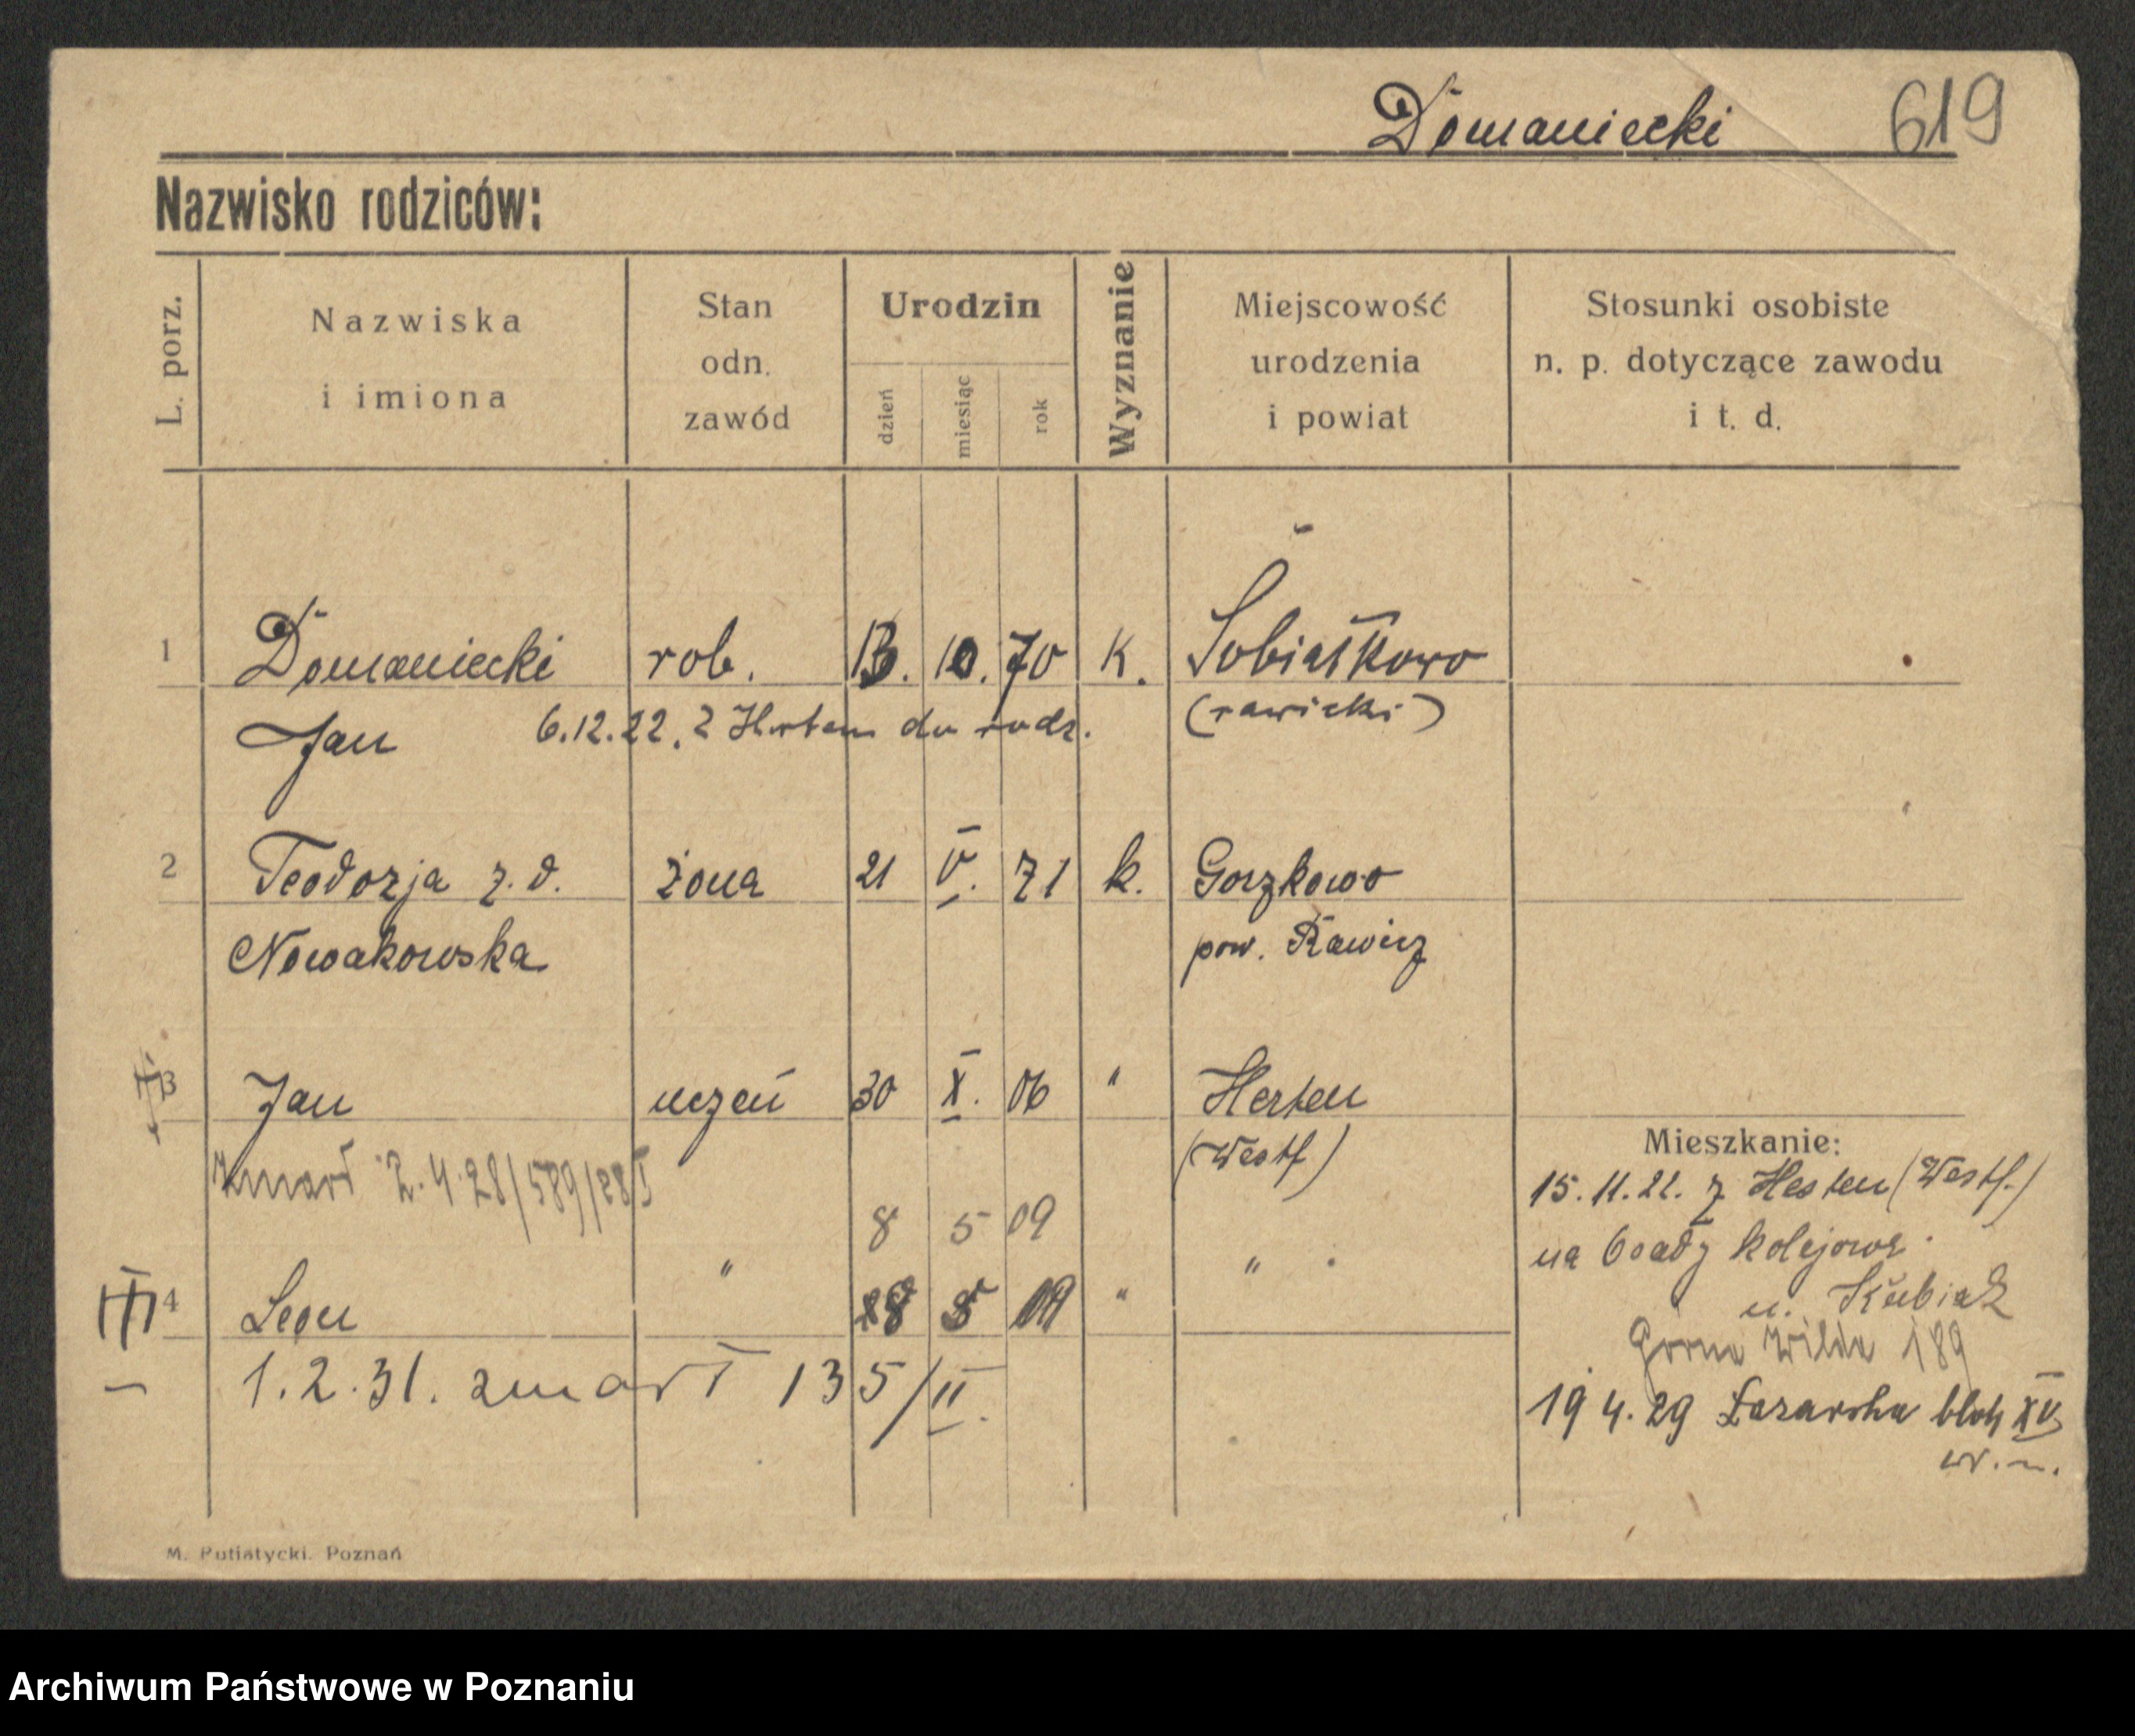 Domaniecki 619
Nazwisko rodziców:
L. porz.
Nazwiska
i imiona
Stan
odn.
zawód
Urodzin
dzień
miesiąc
rok
Wyznanie
Miejscowość
urodzenia
i powiat
Stosunki osobiste
n. p. dotyczące zawodu
i t. d.
1 Domaniecki rob. 13. 10. 70 K. Sobiałkowo
Jan 6.12.22. z Herten do rodz. (rawicki)
2 Teodozja z. d. żona 21 V. 71 k. Gorzkowo
Nowakowska pow. Rawicz
3 Jan uczeń 30 X. 06 " Herten
(Westf)
zmarł 2.4.28/589/28 I
8 5 09
4 Leon " 5 09 " "
1.2.31. zmarł 135/II.
Mieszkanie:
15.11.22. z Herten (Westf.)
na kolejowe
u. Kubiak
Górna Wilda 189
19 4.29 Łazarska blok XV
w. m.
M. Putiatycki. Poznań
Archiwum Państwowe w Poznaniu